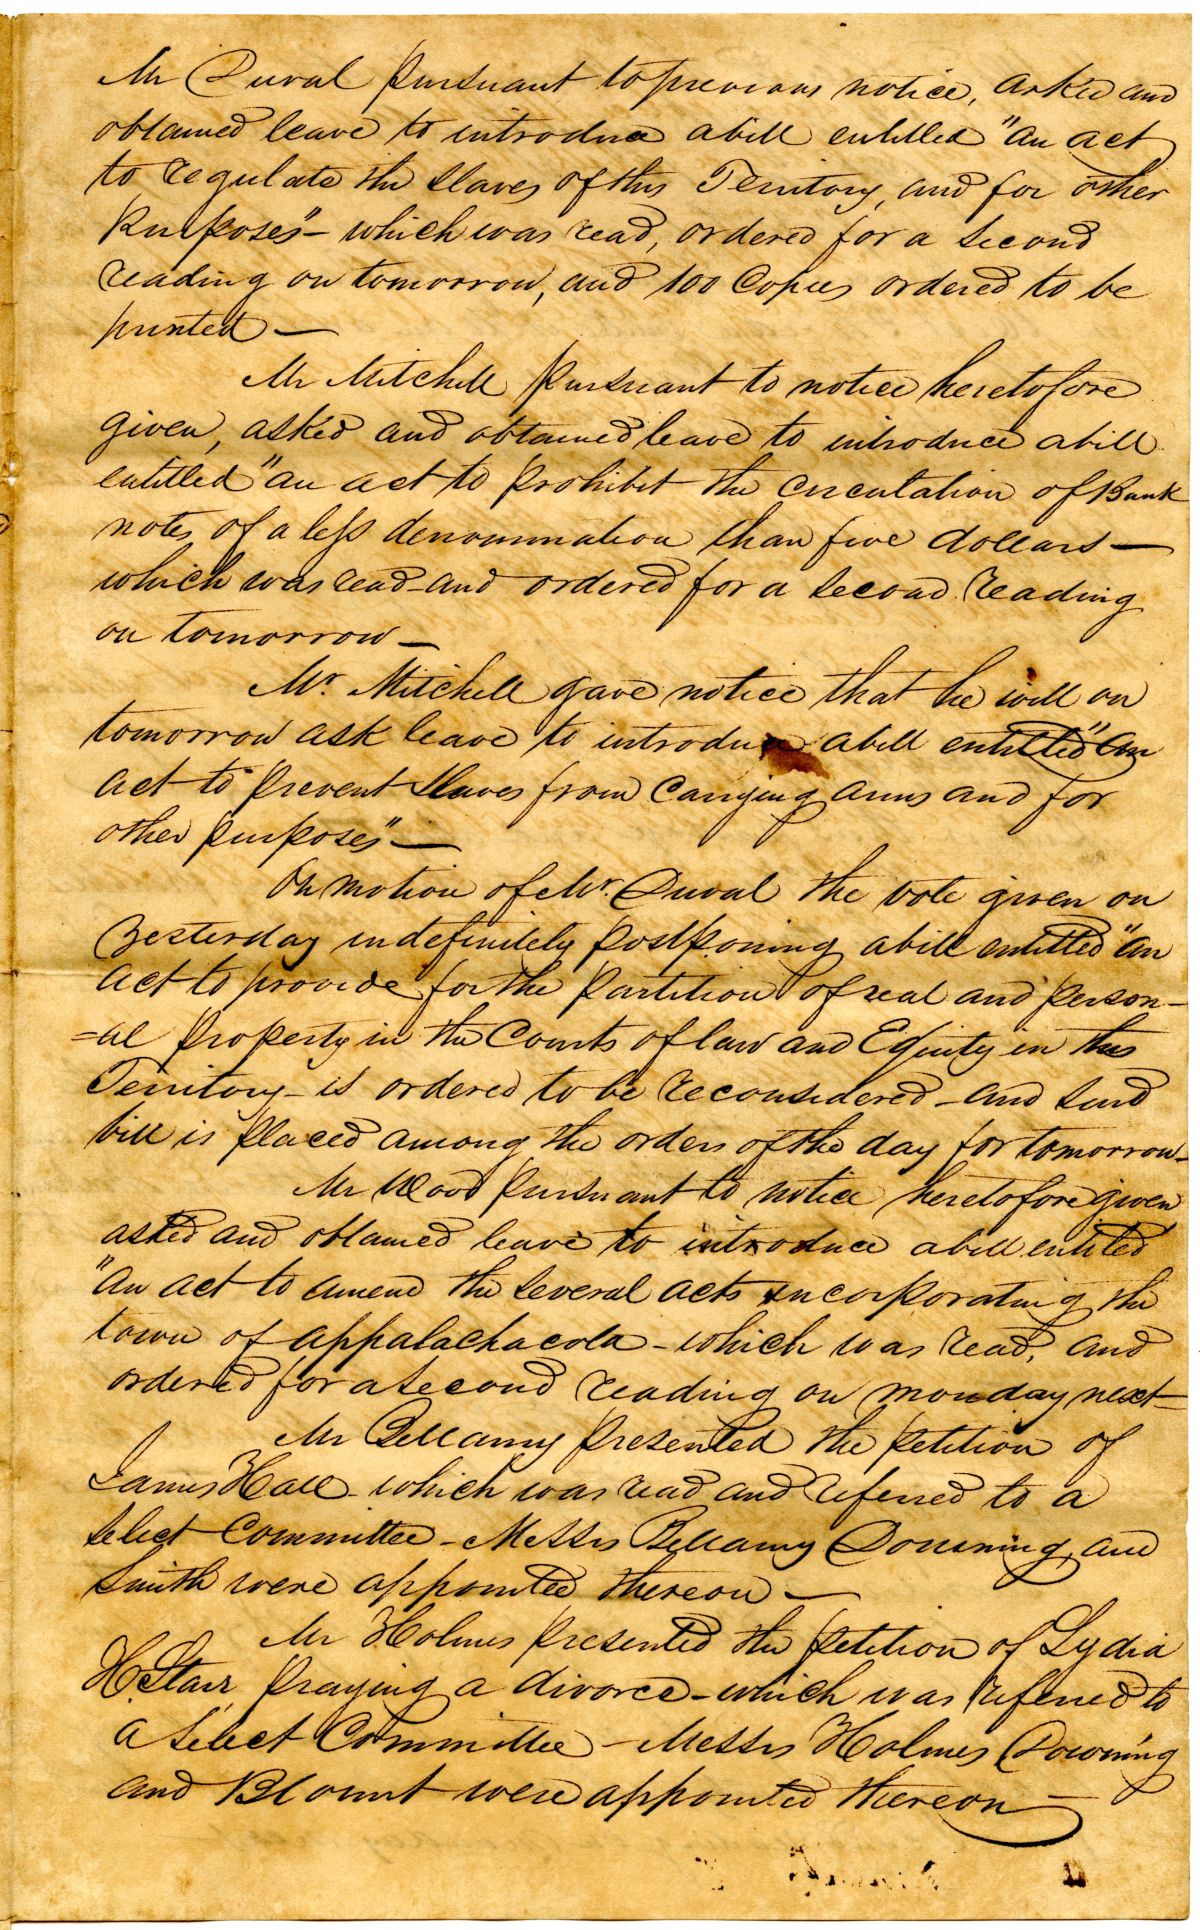 Mr Duval pursuant to previous notice, asked and
obtained leave to introduce a bill entitled "An act
to regulate the slaves of this Territory, and for other
purposes" - which was read, ordered for a second
reading on tomorrow, and 100 Copies ordered to be
printed —
Mr Mitchell pursuant to notice heretofore
given, asked and obtained leave to introduce a bill
entitled "An act to prohibit the circulation of Bank
notes of a less denomination than five dollars —
which was read - and ordered for a second reading
on tomorrow —
Mr. Mitchell gave notice that he will on
tomorrow ask leave to introduce a bill entitled "An
act to prevent slaves from carrying arms and for
other purposes" —
On motion of Mr. Duval the vote given on
Yesterday indefinitely postponing a bill entitled "An
act to provide for the partition of real and person-
=al property in the Courts of law and Equity in this
Territory - is ordered to be reconsidered - and said
bill is placed among the orders of the day for tomorrow -
Mr Wood pursuant to notice heretofore given
asked and obtained leave to introduce a bill entitled
"An act to amend the several acts incorporating the
town of appalachacola - which was read, and
ordered for a second reading on monday next -
Mr Bellamy presented the petition of
James Hall - which was read and referred to a
select Committee - Messrs Bellamy Downing and
Smith were appointed thereon —
Mr Holmes presented the petition of Lydia
H. Starr, praying a divorce - which was referred to
a select Committee - Messrs Holmes Downing
and Blount were appointed thereon —